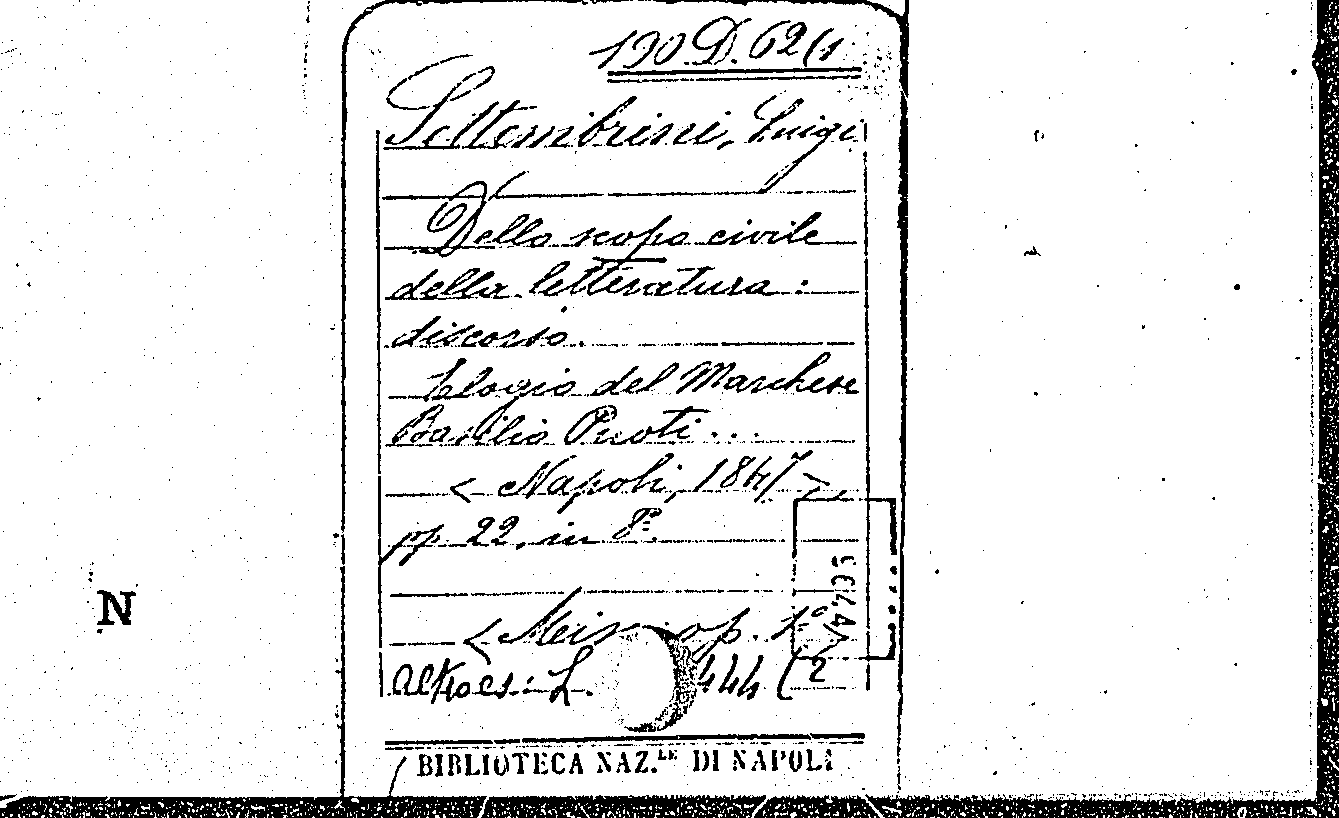 190 D. 62(1
Settembrini, Luigi
Dello scopo civile
della letteratura:
discorso.
Elogio del Marchese
Basilio Puoti...
< Napoli, 1847 >,
pp. 22, in 8º.
op. 1º >
altro es: L. 444 (2
BIBLIOTECA NAZ.LE DI NAPOLI
N